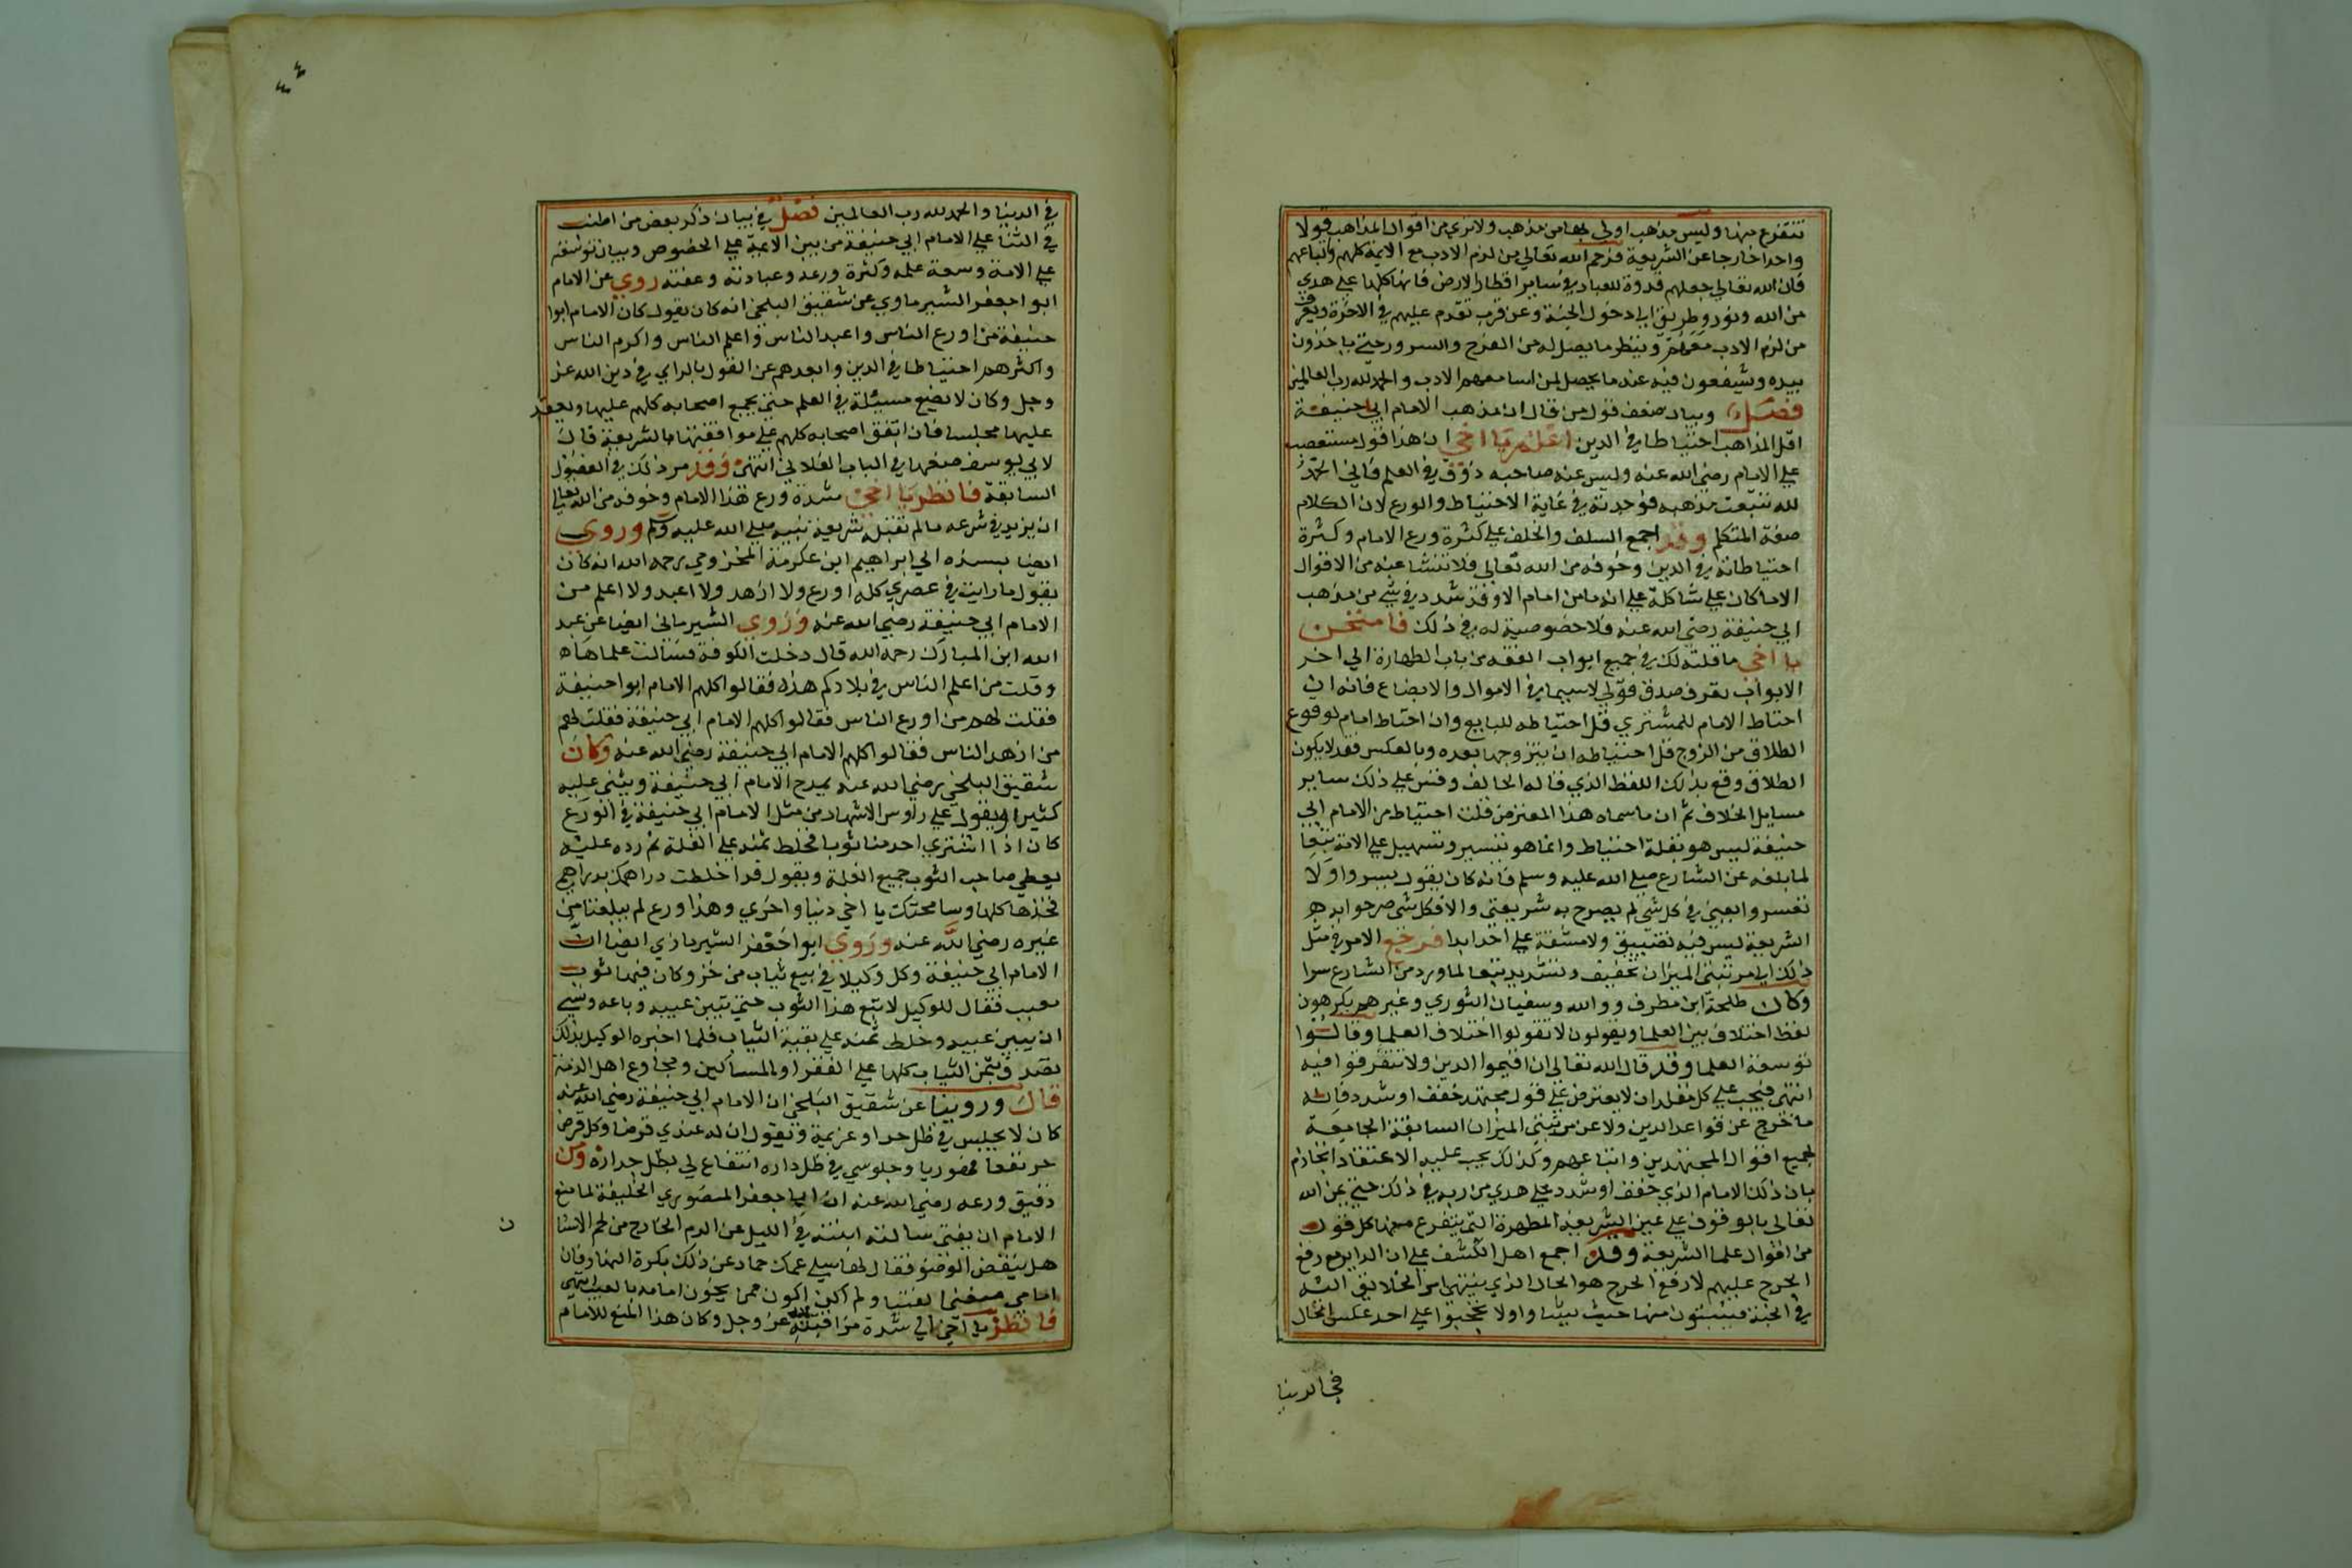 تتفرع منها وليس مذهب اولى بها من مذهب ولا نري من اقوال المذاهب قولا
واحدا خارجا عن الشريعة فرحم الله تعالي من لزم الادب مع الايمة كلهم واتباعهم
فان الله تعالي جعلهم قدوة للعباد في ساير اقطار الارض فانها كلها علي هدي
من الله ونور وطريق الي دخول الجنة وعن قرب تقدم عليهم في الاخرة ويفرح
من لزم الادب معهم وينظر ما يصل له من الفرح والسرور حتي ياخذون
بيده ويشفعون فيه عند ما يحصل لمن اسا معهم الادب والحمد لله رب العالمين
فصل وبيان ضعف قول من قال ان مذهب الامام ابي حنيفة
اقل المذاهب احتياطا في الدين اعلم يا اخي ان هذا قول متعصب
علي الامام رضي الله عنه وليس عند صاحبه ذوق في العلم فاني الحمد
لله تتبعت مذهبه فوجدته في غاية الاحتياط والورع لان الكلام
صفة المتكلم وقد اجمع السلف والخلف علي كثرة ورع الامام وكثرة
احتياطاته في الدين وخوفه من الله تعالي فلا تنشا عنه من الاقوال
الا ما كان علي شاكلته علي انه ما من امام الا وقد شدد في شي من مذهب
ابي حنيفة رضي الله عنه فلا خصوصية له في ذلك فامتحن
يا اخي ما قلته لك في جميع ابواب الفقه من باب الطهارة الي اخر
الابواب تعرف صدق قولي لاسيما في الاموال والابضاع فانه ان
احتاط الامام للمشتري قل احتياطه للبايع وان احتاط امام لوقوع
الطلاق من الزوج قل احتياطه ان يتزوجها بعده وبالعكس فقد لا يكون
الطلاق وقع بذلك اللفظ الذي قاله الحالف وقس علي ذلك ساير
مسايل الخلاف ثم ان ما سماه هذا المعترض قلت احتياط من الامام ابي
حنيفة ليس هو بقلة احتياط وانما هو تيسير وتسهيل علي الامة تبعا
لما بلغه عن الشارع صلي الله عليه وسلم فانه كان يقول يسروا ولا
تعسروا يعني في كل شي لم يصرح به شريعتي والا فكل شي صرحوا به في
الشريعة ليس فيه تضييق ولا مشقة علي احد ابدا فرجع الامر في مثل
ذلك الي مرتبتي الميزان تخفيف وتشديد تبعا لما ورد من الشارع سوا
وكان طلحة ابن مطرف ووالله وسفيان الثوري وغيرهم يكرهون
لفظ اختلاف بين العلما ويقولون لا تقولوا اختلاف العلما وقالوا
توسعة العلما وقد قال الله تعالي ان اقيموا الدين ولا تتفرقوا فيه
انتهي فيجب علي كل مقلد ان لا يعترض علي قول مجتهد خفف او شدد فانه
ما خرج عن قواعد الدين ولا عن مرتبتي الميزان السابقة الجامعة
لجميع اقوال المجتهدين واتباعهم وكذلك يجب عليه الاعتقاد الجازم
بان ذلك الامام الذي خفف او شدد علي هدي من ربه في ذلك حتي يمن الله
تعالي بالوقوف علي عين الشريعة المطهرة التي يتفرع منها كل قول
من اقوال علما الشريعة وقد اجمع اهل الكشف علي ان الداير مع رفع
الحرج عليهم لا رفع الحرج هو الحال الذي ينتهي امر الخلايق اليه
في الجنة فيثبتون منها حيث يشا واولا يحجبوا علي احد عكس الحال
في الدنيا
٤٤
في الدنيا والحمد لله رب العالمين فصل في بيان ذكر بعض من اطنب
في الثنا علي الامام ابي حنيفة من بين الايمة علي الخصوص وبيان توسعته
علي الامة وسعة علمه وكثرة ورعه وعبادته وعفته روي عن الامام
ابوا جعفر الشيرماوي عن شقيق البلخي انه كان يقول كان الامام ابوا
حنيفة من اورع الناس واعبد الناس واعلم الناس واكرم الناس
واكثرهم احتياطا في الدين وابعدهم عن القول بالراي في دين الله عز
وجل وكان لا يضيع مسيلة في العلم حتي يجمع اصحابه كلهم عليها ويعقد
عليها مجلسا فان اتفق اصحابه كلهم علي موافقتها بالشريعة قال
لابي يوسف ضعها في الباب الفلاني انتهي وقد مر ذلك في الفصول
السابقة فانظر يا اخي شدة ورع هذا الامام وخوفه من الله تعالي
ان يزيد في شرعه ما لم تقبله شريعة نبيه صلي الله عليه وسلم وروي
ايضا بسنده الي ابراهيم ابن عكرمة المخزومي رحمه الله انه كان
يقول ما رايت في عصري كله اورع ولا ازهد ولا اعبد ولا اعلم من
الامام ابي حنيفة رضي الله عنه وروي الشيرماني ايضا عن عبد
الله ابن المبارك رحمه الله قال دخلت الكوفة فسالت علماها
وقلت من اعلم الناس في بلادكم هذه فقالوا كلهم الامام ابوا حنيفة
فقلت لهم من اورع الناس فقالوا كلهم الامام ابي حنيفة فقلت لهم
من ازهد الناس فقالوا كلهم الامام ابي حنيفة رضي الله عنه وكان
شقيق البلخي رضي الله عنه يمدح الامام ابي حنيفة ويثني عليه
كثيرا ويقول علي راوس الاشهاد من مثل الامام ابي حنيفة في الورع
كان اذا اشتري احد منا ثوبا فخلط ثمنه علي الغلة ثم رده عليه
يعطي صاحب الثوب جميع الغلة ويقول قد اختلطت دراهمك بدراهم
فخذها كلها وسامحتك يا اخي دنيا واخري وهذا ورع لم يبلغنا من
غيره رضي الله عنه وروي ابوا جعفر الشيرمازي ايضا ان
الامام ابي حنيفة وكل وكيلا في بيع ثياب من خز وكان فيها ثوب
معيب فقال للوكيل لا تبع هذا الثوب حتي تبين عيبه وباعه ونسي
ان يبين عيبه وخلط ثمنه علي بقية الثياب فلما اخبره الوكيل بذلك
تصدق بثمن الثياب كلها علي الفقرا والمساكين ومجاوع اهل الذمة
قال وروينا عن شقيق البلخي ان الامام ابي حنيفة رضي الله عنه
كان لا يجلس في ظل جدار غريمه ويقول ان له عندي قرضا وكل قرض
جر نفعا فهو ربا وجلوسي في ظل داره انتفاع لي بظل جداره ومن
دقيق ورعه رضي الله عنه ان ابا جعفر المنصوري الخليفة لما منع
الامام ان يفتي سالته ابنته في الليل عن الدم الخارج من لحم الاسنا
ن
هل ينقض الوضو فقال لها سلي عمك حماد عن ذلك بكرة النهار فان
امامي منعني الفتيا ولم اكن اكون ممن يخون امامه بالغيب انتهي
فانظر يا اخي الي شدة مراقبته لله عز وجل وكان هذا المنع للامام